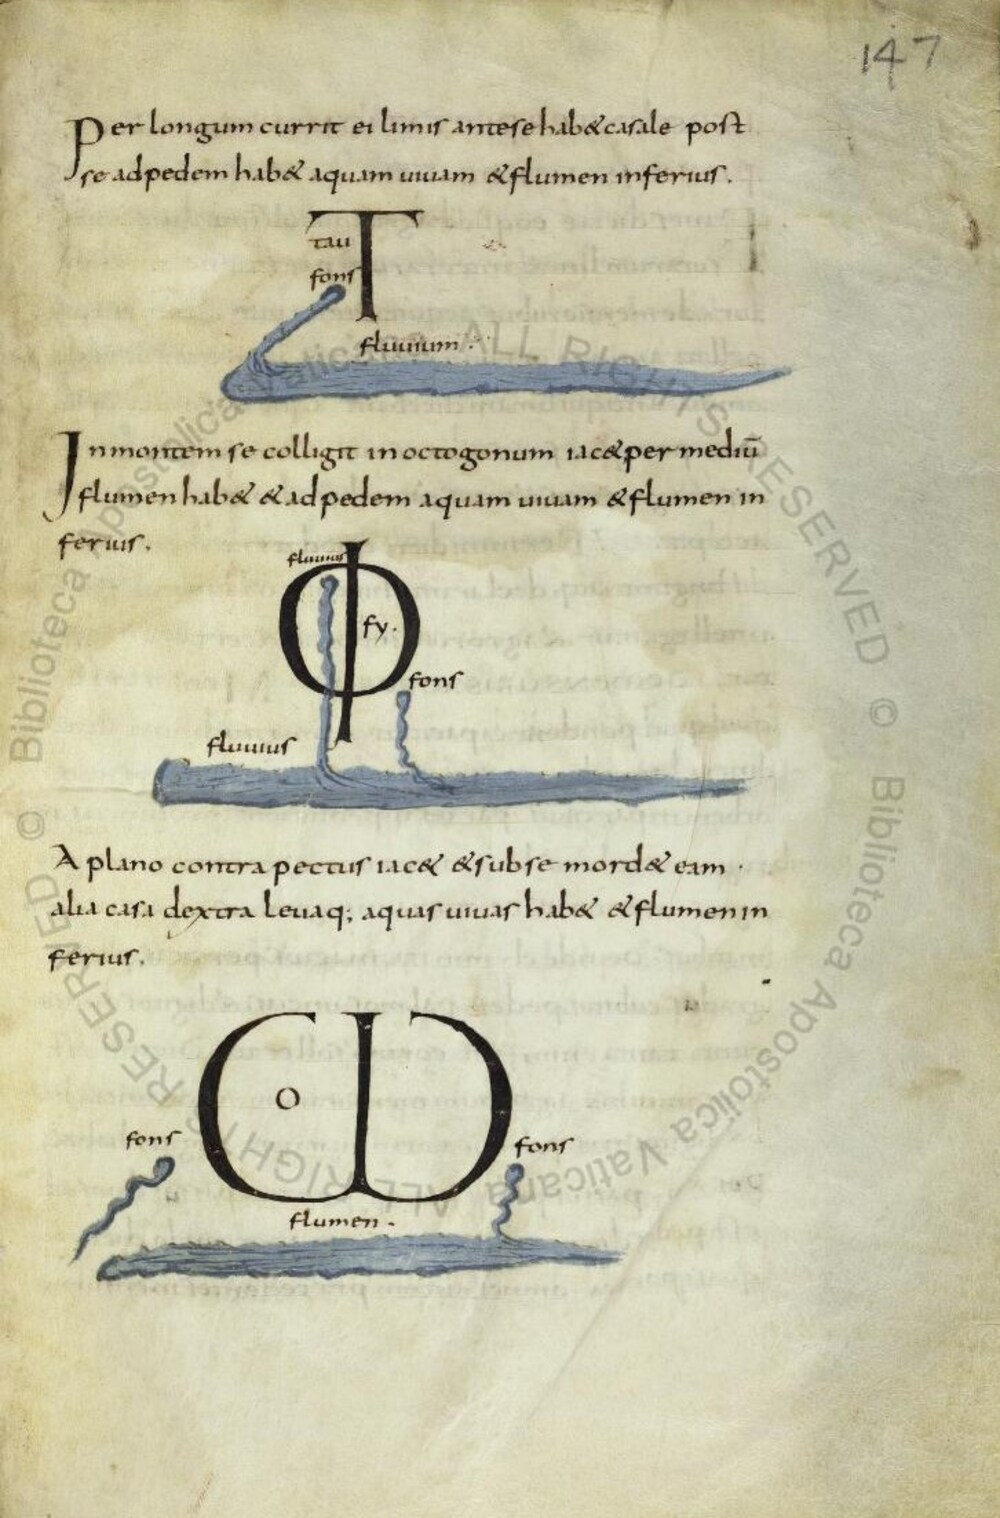 147
Per longum currit ei limis antese hab& casale post
se adpedem hab& aquam uiuam &flumen inferius.
T
tau
fons
fluuium.
Inmontem se colligit inoctogonum iac& per mediū
flumen hab& & adpedem aquam uiuam &flumen in
ferius.
fluuius
Φ
fy.
fons
fluuius
A plano contra pectus iac& &subse mord& eam.
alia casa dextra leuaq; aquas uiuas hab& &flumen in
ferius.
ω
O
fons
fons
flumen.
© Biblioteca Apostolica Vaticana ALL RIGHTS RESERVED © Biblioteca Apostolica Vaticana ALL RIGHTS RESERVED